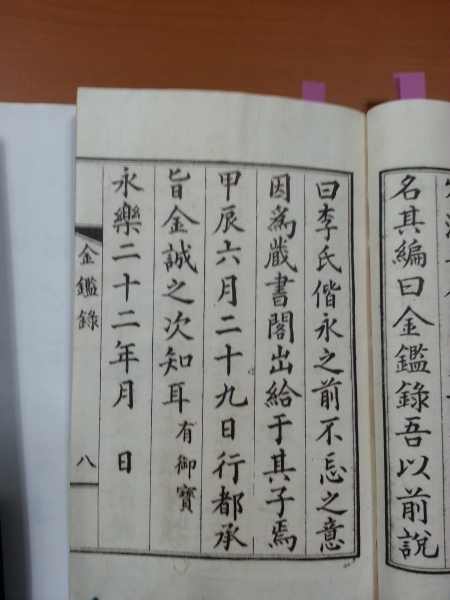 名其編曰金鑑錄吾以前說
曰李氏偕永之前不忘之意
因爲蔵書閣出給于其子焉
甲辰六月二十九日行都承
旨金誠之次知耳有御寶
永樂二十二年月 日
金鑑錄 八